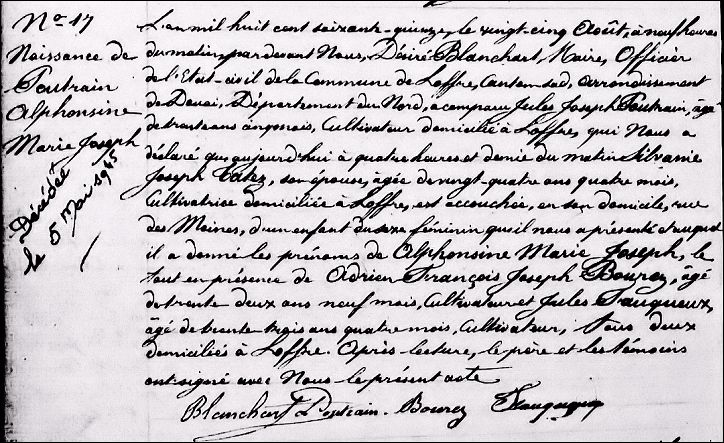 No 17
Naissance de
Poutrain
Alphonsine
Marie Joseph
Décédée
le 5 Mai 1945
L'an mil huit cent soixante-quinze, le vingt-cinq Août, à neuf heures
du matin, par devant Nous, Désiré Blanchart, Maire, Officier
de l'Etat-civil de la Commune de Loffre, Canton sud, arrondissement
de Douai, Département du Nord, a comparu Jules Joseph Poutrain, âgé
de trente ans cinq mois, Cultivateur domicilié à Loffre, qui Nous a
déclaré qu'aujourd'hui à quatre heures et demie du matin Silvanie
Joseph Patez, son épouse, âgée de vingt-quatre ans quatre mois,
Cultivatrice domiciliée à Loffre, est accouchée, en son domicile, rue
des Moines, d'un enfant du sexe féminin qu'il nous a présenté et auquel
il a donné les prénoms de Alphonsine Marie Joseph, le
tout en présence de Adrien François Joseph Bourez, âgé
de trente-deux ans neuf mois, Cultivateur et Jules Fauqueux,
âgé de trente-trois ans quatre mois, Cultivateur, tous deux
domiciliés à Loffre. Après lecture, le père et les témoins
ont signé avec Nous le présent acte
Blanchart Poutrain Bourez Fauqueux